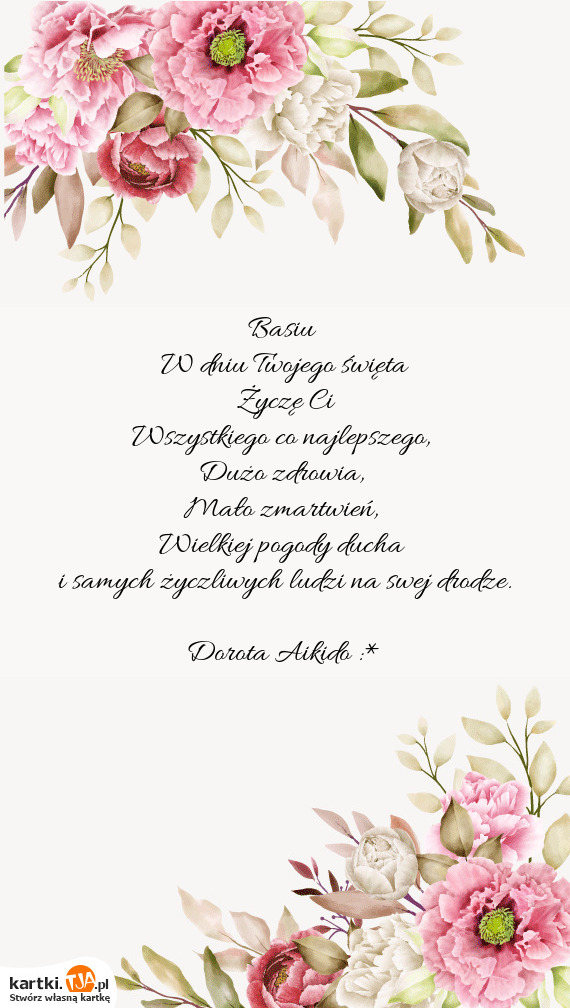 Basiu
W dniu Twojego święta
Życzę Ci
Wszystkiego co najlepszego,
Dużo zdrowia,
Mało zmartwień,
Wielkiej pogody ducha
i samych życzliwych ludzi na swej drodze.
Dorota Aikido :*
kartki.TJA.pl
Stwórz własną kartkę